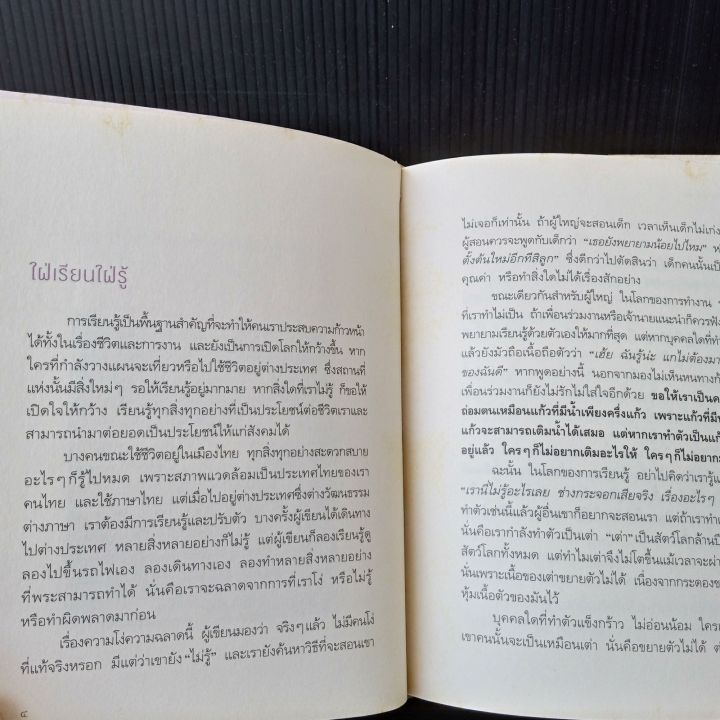 ใฝ่เรียนใฝ่รู้
การเรียนรู้เป็นพื้นฐานสำคัญที่จะทำให้คนเราประสบความก้าวหน้า
ได้ทั้งในเรื่องชีวิตและการงาน และยังเป็นการเปิดโลกให้กว้างขึ้น หาก
ใครที่กำลังวางแผนจะเที่ยวหรือไปใช้ชีวิตอยู่ต่างประเทศ ซึ่งสถานที่
แห่งนั้นมีสิ่งใหม่ๆ รอให้เรียนรู้อยู่มากมาย หากสิ่งใดที่เราไม่รู้ ก็ขอให้
เปิดใจให้กว้าง เรียนรู้ทุกสิ่งทุกอย่างที่เป็นประโยชน์ต่อชีวิตเราและ
สามารถนำมาต่อยอดเป็นประโยชน์ให้แก่สังคมได้
บางคนขณะใช้ชีวิตอยู่ในเมืองไทย ทุกสิ่งทุกอย่างสะดวกสบาย
อะไรๆ ก็รู้ไปหมด เพราะสภาพแวดล้อมเป็นประเทศไทยของเรา
คนไทย และใช้ภาษาไทย แต่เมื่อไปอยู่ต่างประเทศซึ่งต่างวัฒนธรรม
ต่างภาษา เราต้องมีการเรียนรู้และปรับตัว บางครั้งผู้เขียนได้เดินทาง
ไปต่างประเทศ หลายสิ่งหลายอย่างก็ไม่รู้ แต่ผู้เขียนก็ลองเรียนรู้ดู
ลองไปขึ้นรถไฟเอง ลองเดินทางเอง ลองทำหลายสิ่งหลายอย่าง
ที่พระสามารถทำได้ นั่นคือเราจะฉลาดจากการที่เราโง่ หรือไม่รู้
หรือทำผิดพลาดมาก่อน
เรื่องความโง่ความฉลาดนี้ ผู้เขียนมองว่า จริงๆ แล้ว ไม่มีคนโง่
ที่แท้จริงหรอก มีแต่ว่าเขายัง “ไม่รู้” และเรายังค้นหาวิธีที่จะสอนเขา
๔
ไม่เจอก็เท่านั้น ถ้าผู้ใหญ่จะสอนเด็ก เวลาเห็นเด็กไม่เก่ง
ผู้สอนควรจะพูดกับเด็กว่า “เธอยังพยายามน้อยไปไหม”
ตั้งต้นใหม่อีกทีสิลูก” ซึ่งดีกว่าไปตัดสินว่า เด็กคนนั้นเป็น
คุณค่า หรือทำสิ่งใดไม่ได้เรื่องสักอย่าง
ขณะเดียวกันสำหรับผู้ใหญ่ ในโลกของการทำงาน
ที่เราทำไม่เป็น ถ้าเพื่อนร่วมงานหรือเจ้านายแนะนำก็ควรฟัง
พยายามเรียนรู้ด้วยตัวเองให้มากที่สุด แต่หากบุคคลใดที่ทำ
แล้วยังมัวถือเนื้อถือตัวว่า “เฮ้ย ฉันรู้น่ะ แกไม่ต้องมา
ของฉันดี” หากพูดอย่างนี้ นอกจากมองไม่เห็นหนทางก้
เพื่อนร่วมงานก็ยังไม่รักไม่ใส่ใจอีกด้วย ขอให้เราเป็นค
ถ่อมตนเหมือนแก้วที่มีน้ำเพียงครึ่งแก้ว เพราะแก้วที่มี
แก้วจะสามารถเติมน้ำได้เสมอ แต่หากเราทำตัวเป็นแก้
อยู่แล้ว ใครๆ ก็ไม่อยากเติมอะไรให้ ใครๆ ก็ไม่อยาก
ฉะนั้น ในโลกของการเรียนรู้ อย่าไปคิดว่าเรารู้
“เรานี่ไม่รู้อะไรเลย ช่างกระจอกเสียจริง เรื่องอะไรๆ
ทำตัวเช่นนี้แล้วผู้อื่นเขาก็อยากจะสอนเรา แต่ถ้าเราทำ
นั่นคือเรากำลังทำตัวเป็นเต่า “เต่า” เป็นสัตว์โลกล้าน
สัตว์โลกทั้งหมด แต่ทำไมเต่าจึงไม่โตขึ้นแม้เวลาจะผ่า
นั่นเพราะเนื้อของเต่าขยายตัวไม่ได้ เนื่องจากกระดอง
หุ้มเนื้อตัวของมันไว้
บุคคลใดที่ทำตัวแข็งกร้าว ไม่อ่อนน้อม ใคร
เขาคนนั้นจะเป็นเหมือนเต่า นั่นคือขยายตัวไม่ได้